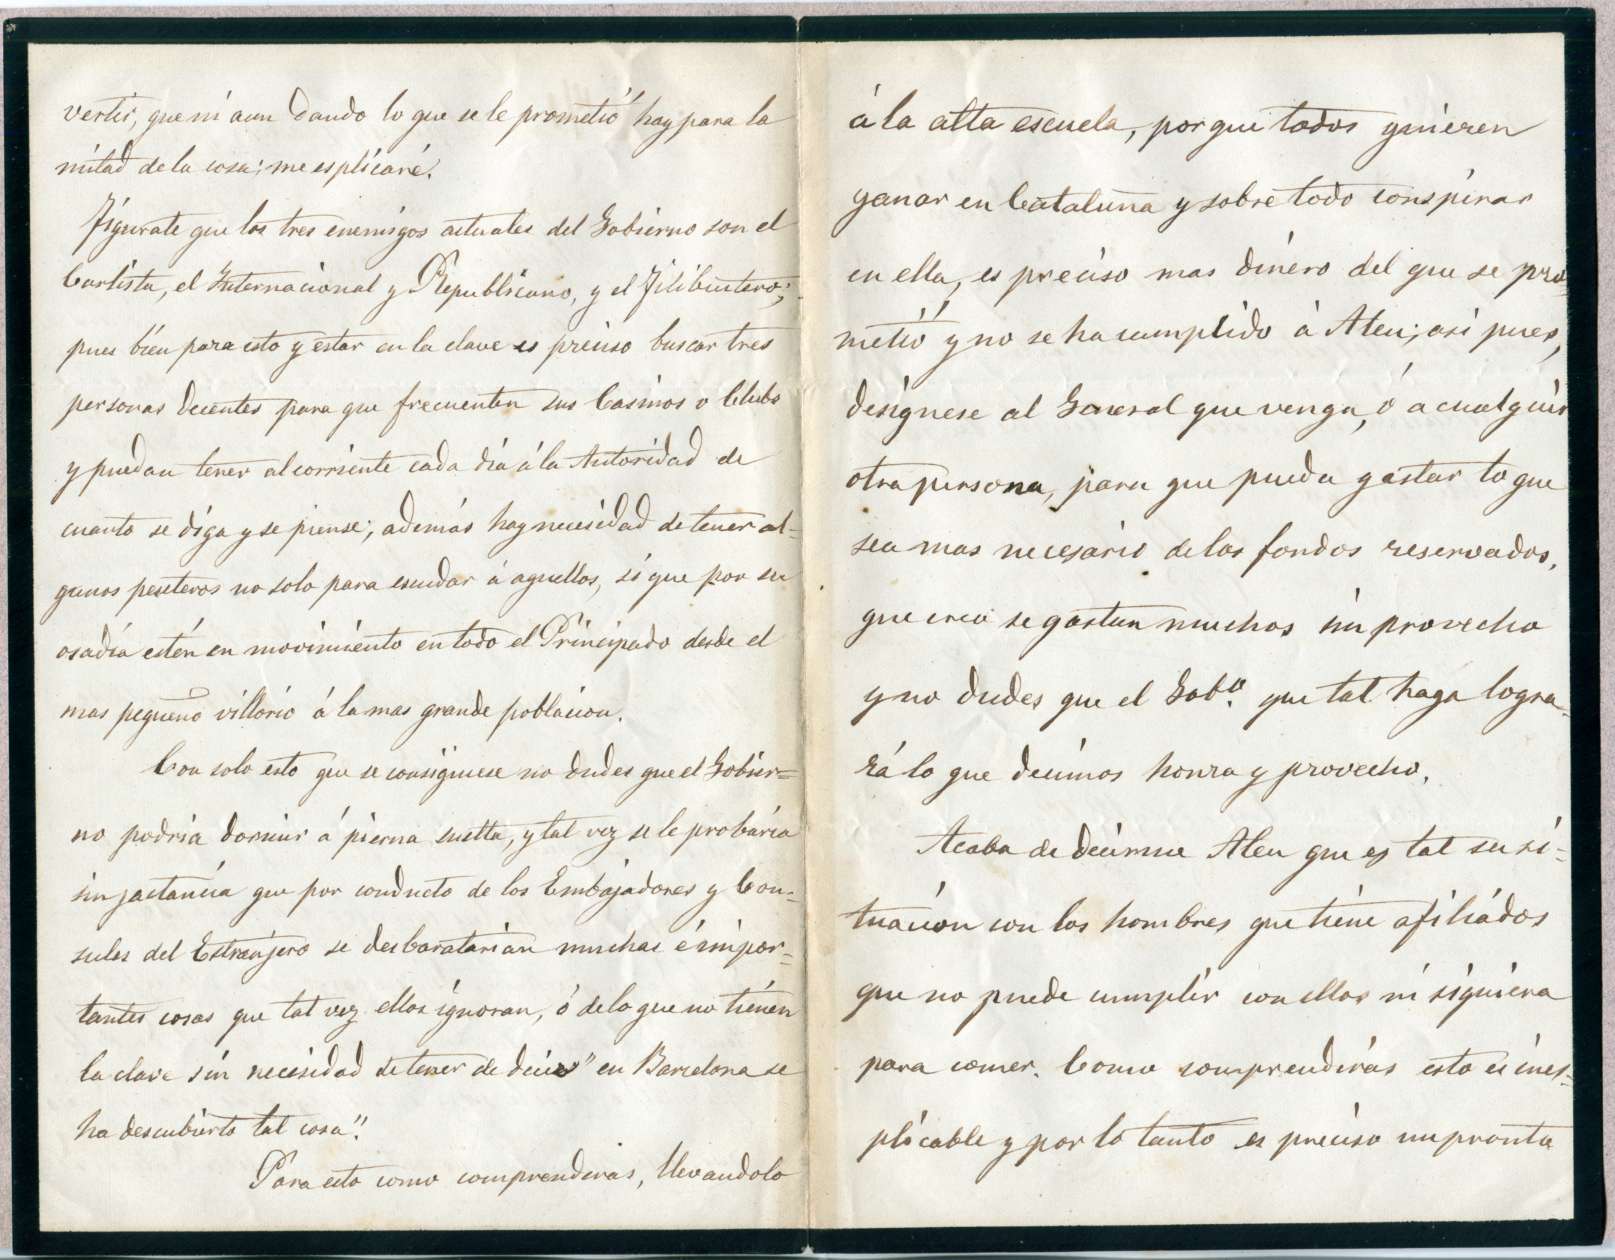 vertir, que ni aun dando lo que se le prometió hay para la
mitad de la cosa; me esplicaré.
Figurate que los tres enemigos actuales del Gobierno son el
Carlista, el Internacional y Republicano, y el Filibustero;
pues bien para esto y estar en la clave es preciso buscar tres
personas decentes para que frecuenten sus Casinos o Clubs
y puedan tener al corriente cada dia á la Autoridad de
cuanto se diga y se piense; además hay necesidad de tener al-
gunos peseteros no solo para escudar á aquellos, si que por su
osadía estén en movimiento en todo el Principado desde el
mas pequeño villorio á la mas grande poblacion.
Con solo esto que se consiguiese no dudes que el Gobier=
no podria dormir á pierna suelta, y tal vez se le probaria
sin jactancia que por conducto de los Embajadores y Con-
sules del Estranjero se desbaratarian muchas é impor-
tantes cosas que tal vez ellos ignoran, ó de lo que no tienen
la clave sin necesidad de tener de decir" en Barcelona se
ha descubierto tal cosa".
Para esto como comprenderas, llevandolo
á la alta escuela, porque todos quieren
ganar en Cataluña y sobre todo conspirar
en ella, es preciso mas dinero del que se pro-
metió y no se ha cumplido á Aleu; asi pues,
designese al General que venga, ó a cualquier
otra persona, para que pueda gastar lo que
sea mas necesario de los fondos reservados,
que creo se gastan muchos sin provecho
y no dudes que el Gobo. que tal haga logra-
rá lo que decimos honra y provecho.
Acaba de decirme Aleu que es tal su si=
tuacion con los hombres que tiene afiliados
que no puede cumplir con ellos ni siquiera
para comer. Como comprenderás esto es ines-
plicable y por lo tanto es preciso un pronto